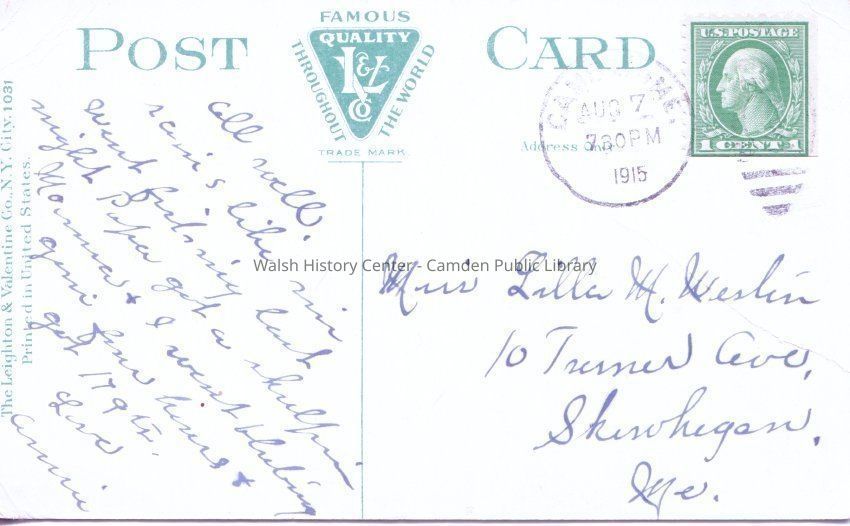 POST CARD
FAMOUS
QUALITY
L & V Co
THROUGHOUT THE WORLD
TRADE MARK
Address Only
CAMDEN
AUG 7
7 30 PM
1915
U.S. POSTAGE
1 CENT 1
The Leighton & Valentine Co., N.Y. City. 1031
Printed in United States.
all well.
rains like
went fishing last
night Papa got a sculpin
Momma & I went
four hours &
got 179
Love
Annie
Walsh History Center - Camden Public Library
Miss Lilla M. Weston
10 Turner Ave,
Skowhegan,
Me.